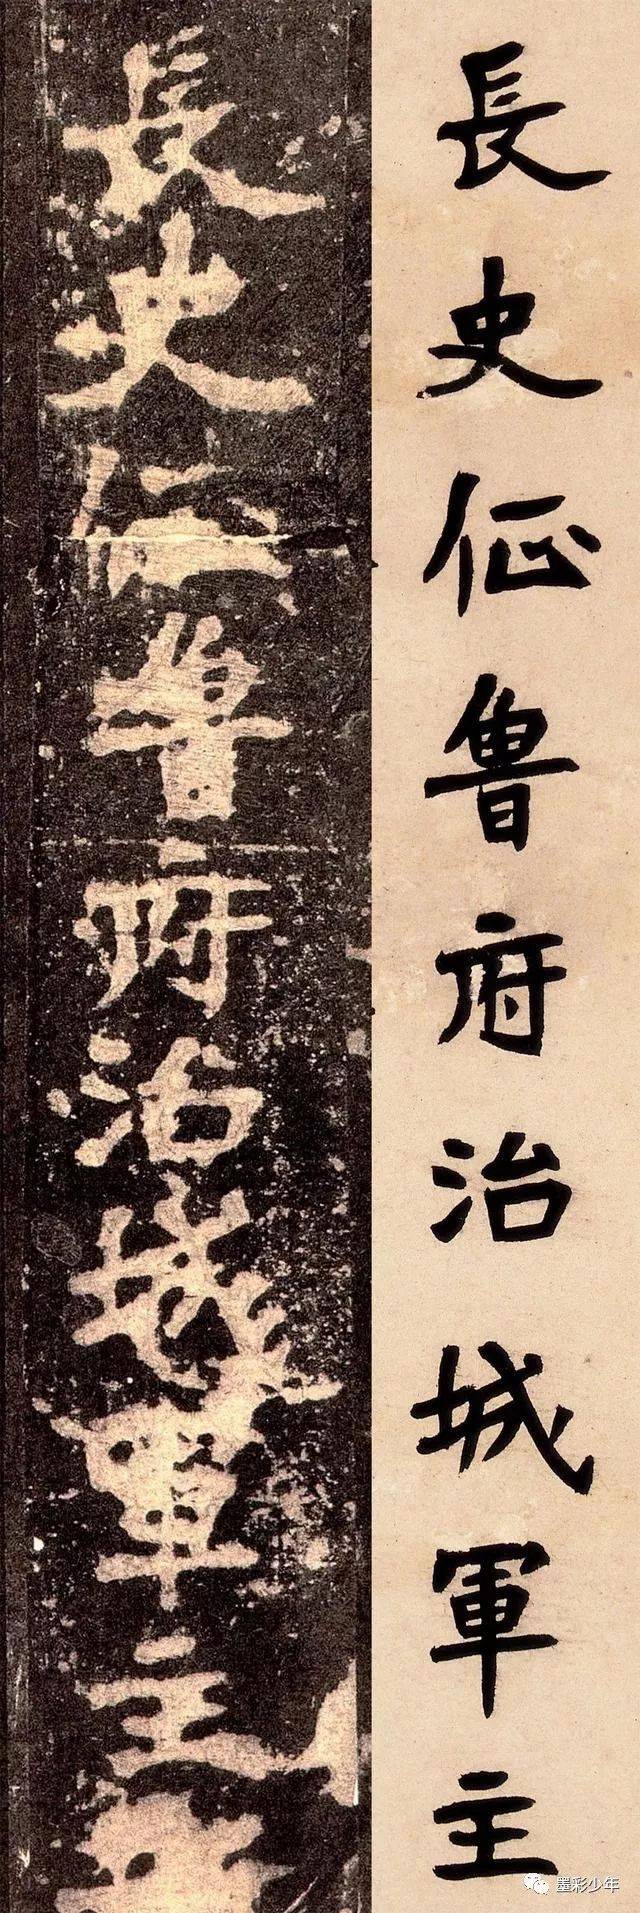 長史佂魯府治城軍主
長史佂魯府治城軍主
墨彩少年